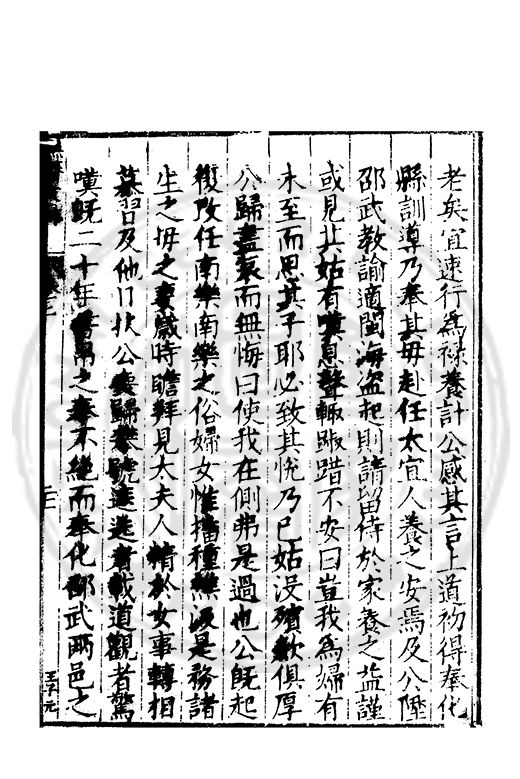 老矣宜速行為祿養計公感其言上道初得奉化
縣訓導乃奉其母赴任太宜人養之安焉及公陞
邵武教諭適閩海盜起則請留侍於家養之益謹
或見其姑有嘆息聲輒踧踖不安曰豈我為婦有
未至而思其子耶必致其悅乃已姑没殯歛俱厚
公歸盡哀而無悔曰使我在側弗是過也公既起
復改任南樂南樂之俗婦女惟播種是務諸
生之母之妻歲時瞻拜見太夫人精於女事轉相
慕習及他公歸道觀者驚
嘆既二十年之不絕而奉化邵武兩邑之